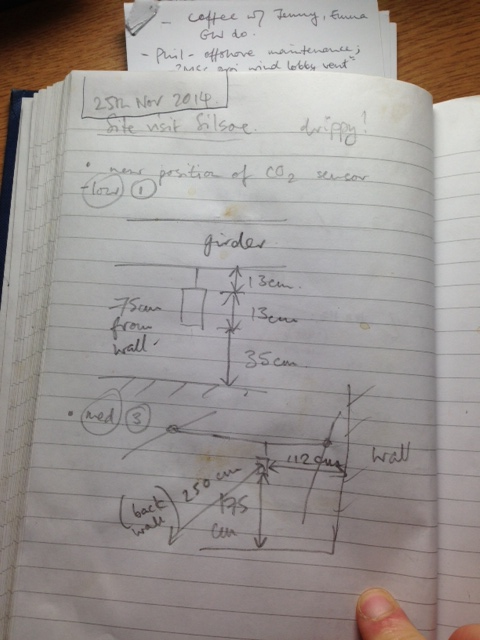 - coffee w/ Jenny, Emma
GW do.
- Phil - offshore maintenance;
wind lobby vent"
25th Nov 2014.
Site visit Silsoe. drippy!
• new position of CO2 sensor
- low 1
girder
13cm.
75cm
from
wall.
13cm
35cm.
• med 3
wall
112 cm
250 cm
(back
wall)
175
cm